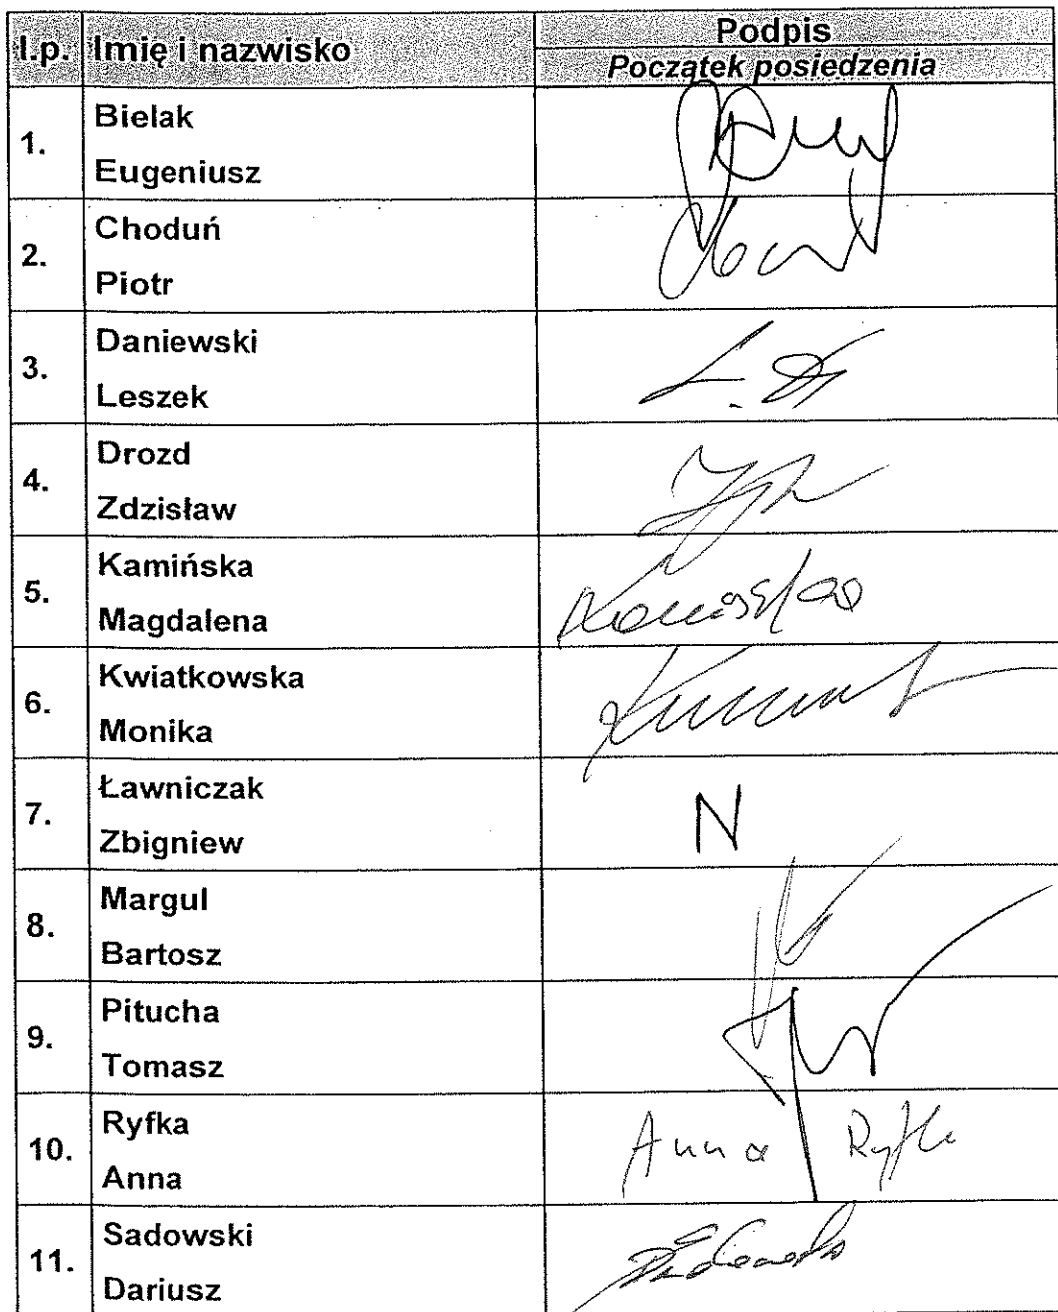 l.p. Imię i nazwisko Podpis
Początek posiedzenia
1. Bielak
Eugeniusz
2. Choduń
Piotr
3. Daniewski
Leszek
4. Drozd
Zdzisław
5. Kamińska
Magdalena
6. Kwiatkowska
Monika
7. Ławniczak
Zbigniew
N
8. Margul
Bartosz
9. Pitucha
Tomasz
10. Ryfka
Anna
Anna Ryfka
11. Sadowski
Dariusz